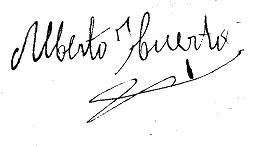 Alberto Huerto